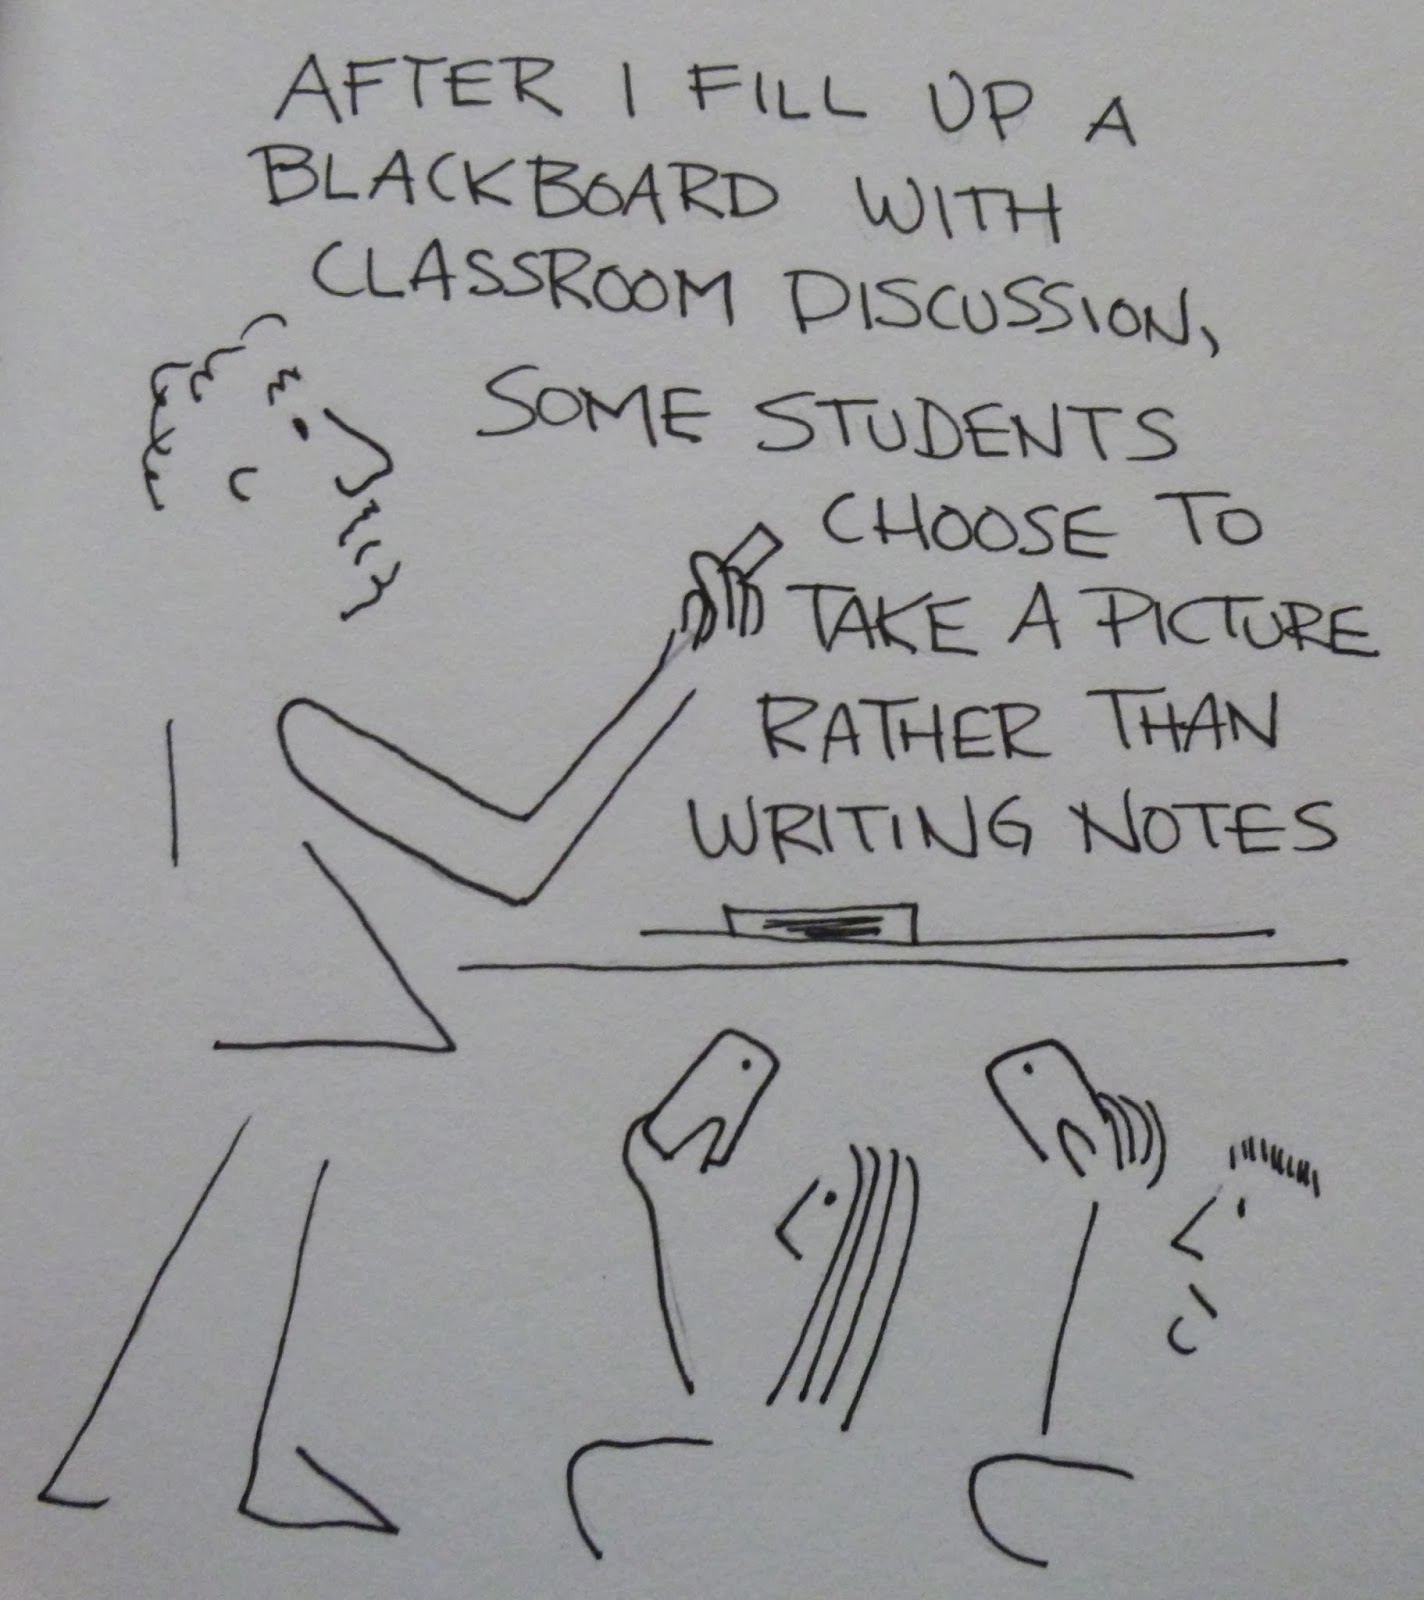 AFTER I FILL UP A
BLACKBOARD WITH
CLASSROOM DISCUSSION,
SOME STUDENTS
CHOOSE TO
TAKE A PICTURE
RATHER THAN
WRITING NOTES